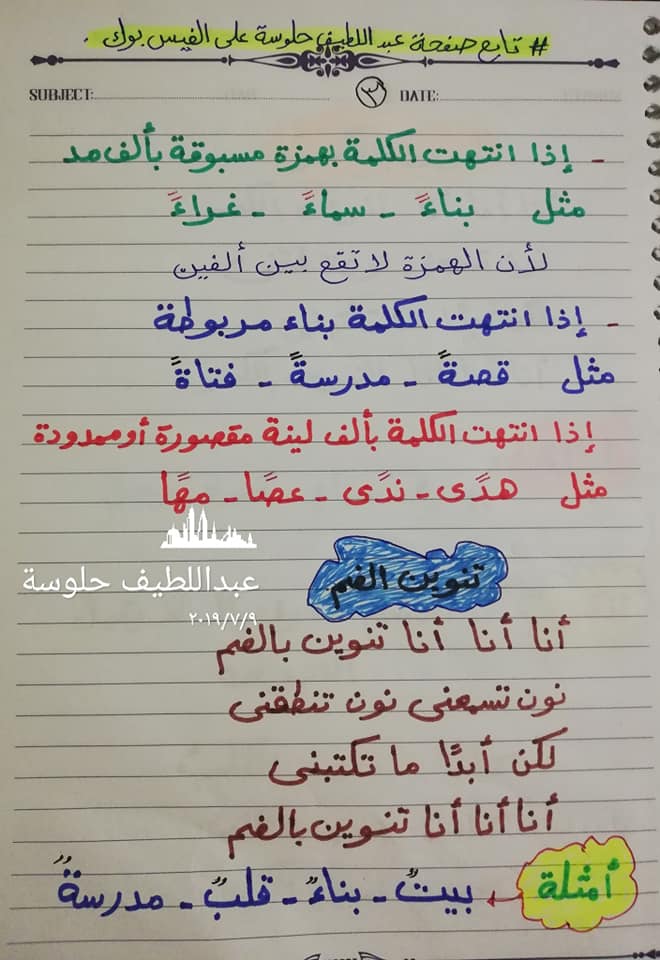 # تابع صفحة عبد اللطيف حلوسة على الفيس بوك.
SUBJECT: ٣ DATE:
- إذا انتهت الكلمة بهمزة مسبوقة بألف مد
مثل بناءً - سماءً - غراءً
لأن الهمزة لا تقع بين ألفين
- إذا انتهت الكلمة بتاء مربوطة
مثل قصةً - مدرسةً - فتاةً
إذا انتهت الكلمة بألف لينة مقصورة أو ممدودة
مثل هدًى - ندًى - عصًا - مهًا
عبداللطيف حلوسة
٢٠١٩/٧/٩
تنوين الضم
أنا أنا أنا تنوين بالضم
نون تسمعنى نون تنطقنى
لكن أبدًا ما تكتبنى
أنا أنا أنا تنوين بالضم
أمثلة بيتٌ - بناءٌ - قلبٌ - مدرسةٌ